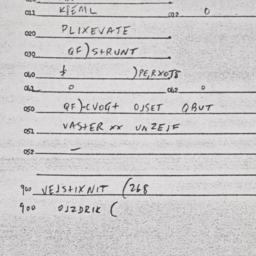 011 KIEML 0
020 PLIXEVATE
030 QF)STRUNT
040 )PE,RXOTS
0
050 QF)-CVOG+ OJSET QBUT
051 VASTER xx UNZEJF
052 —
900 VEJSTIXNIT (268
900 OJZDRIK (